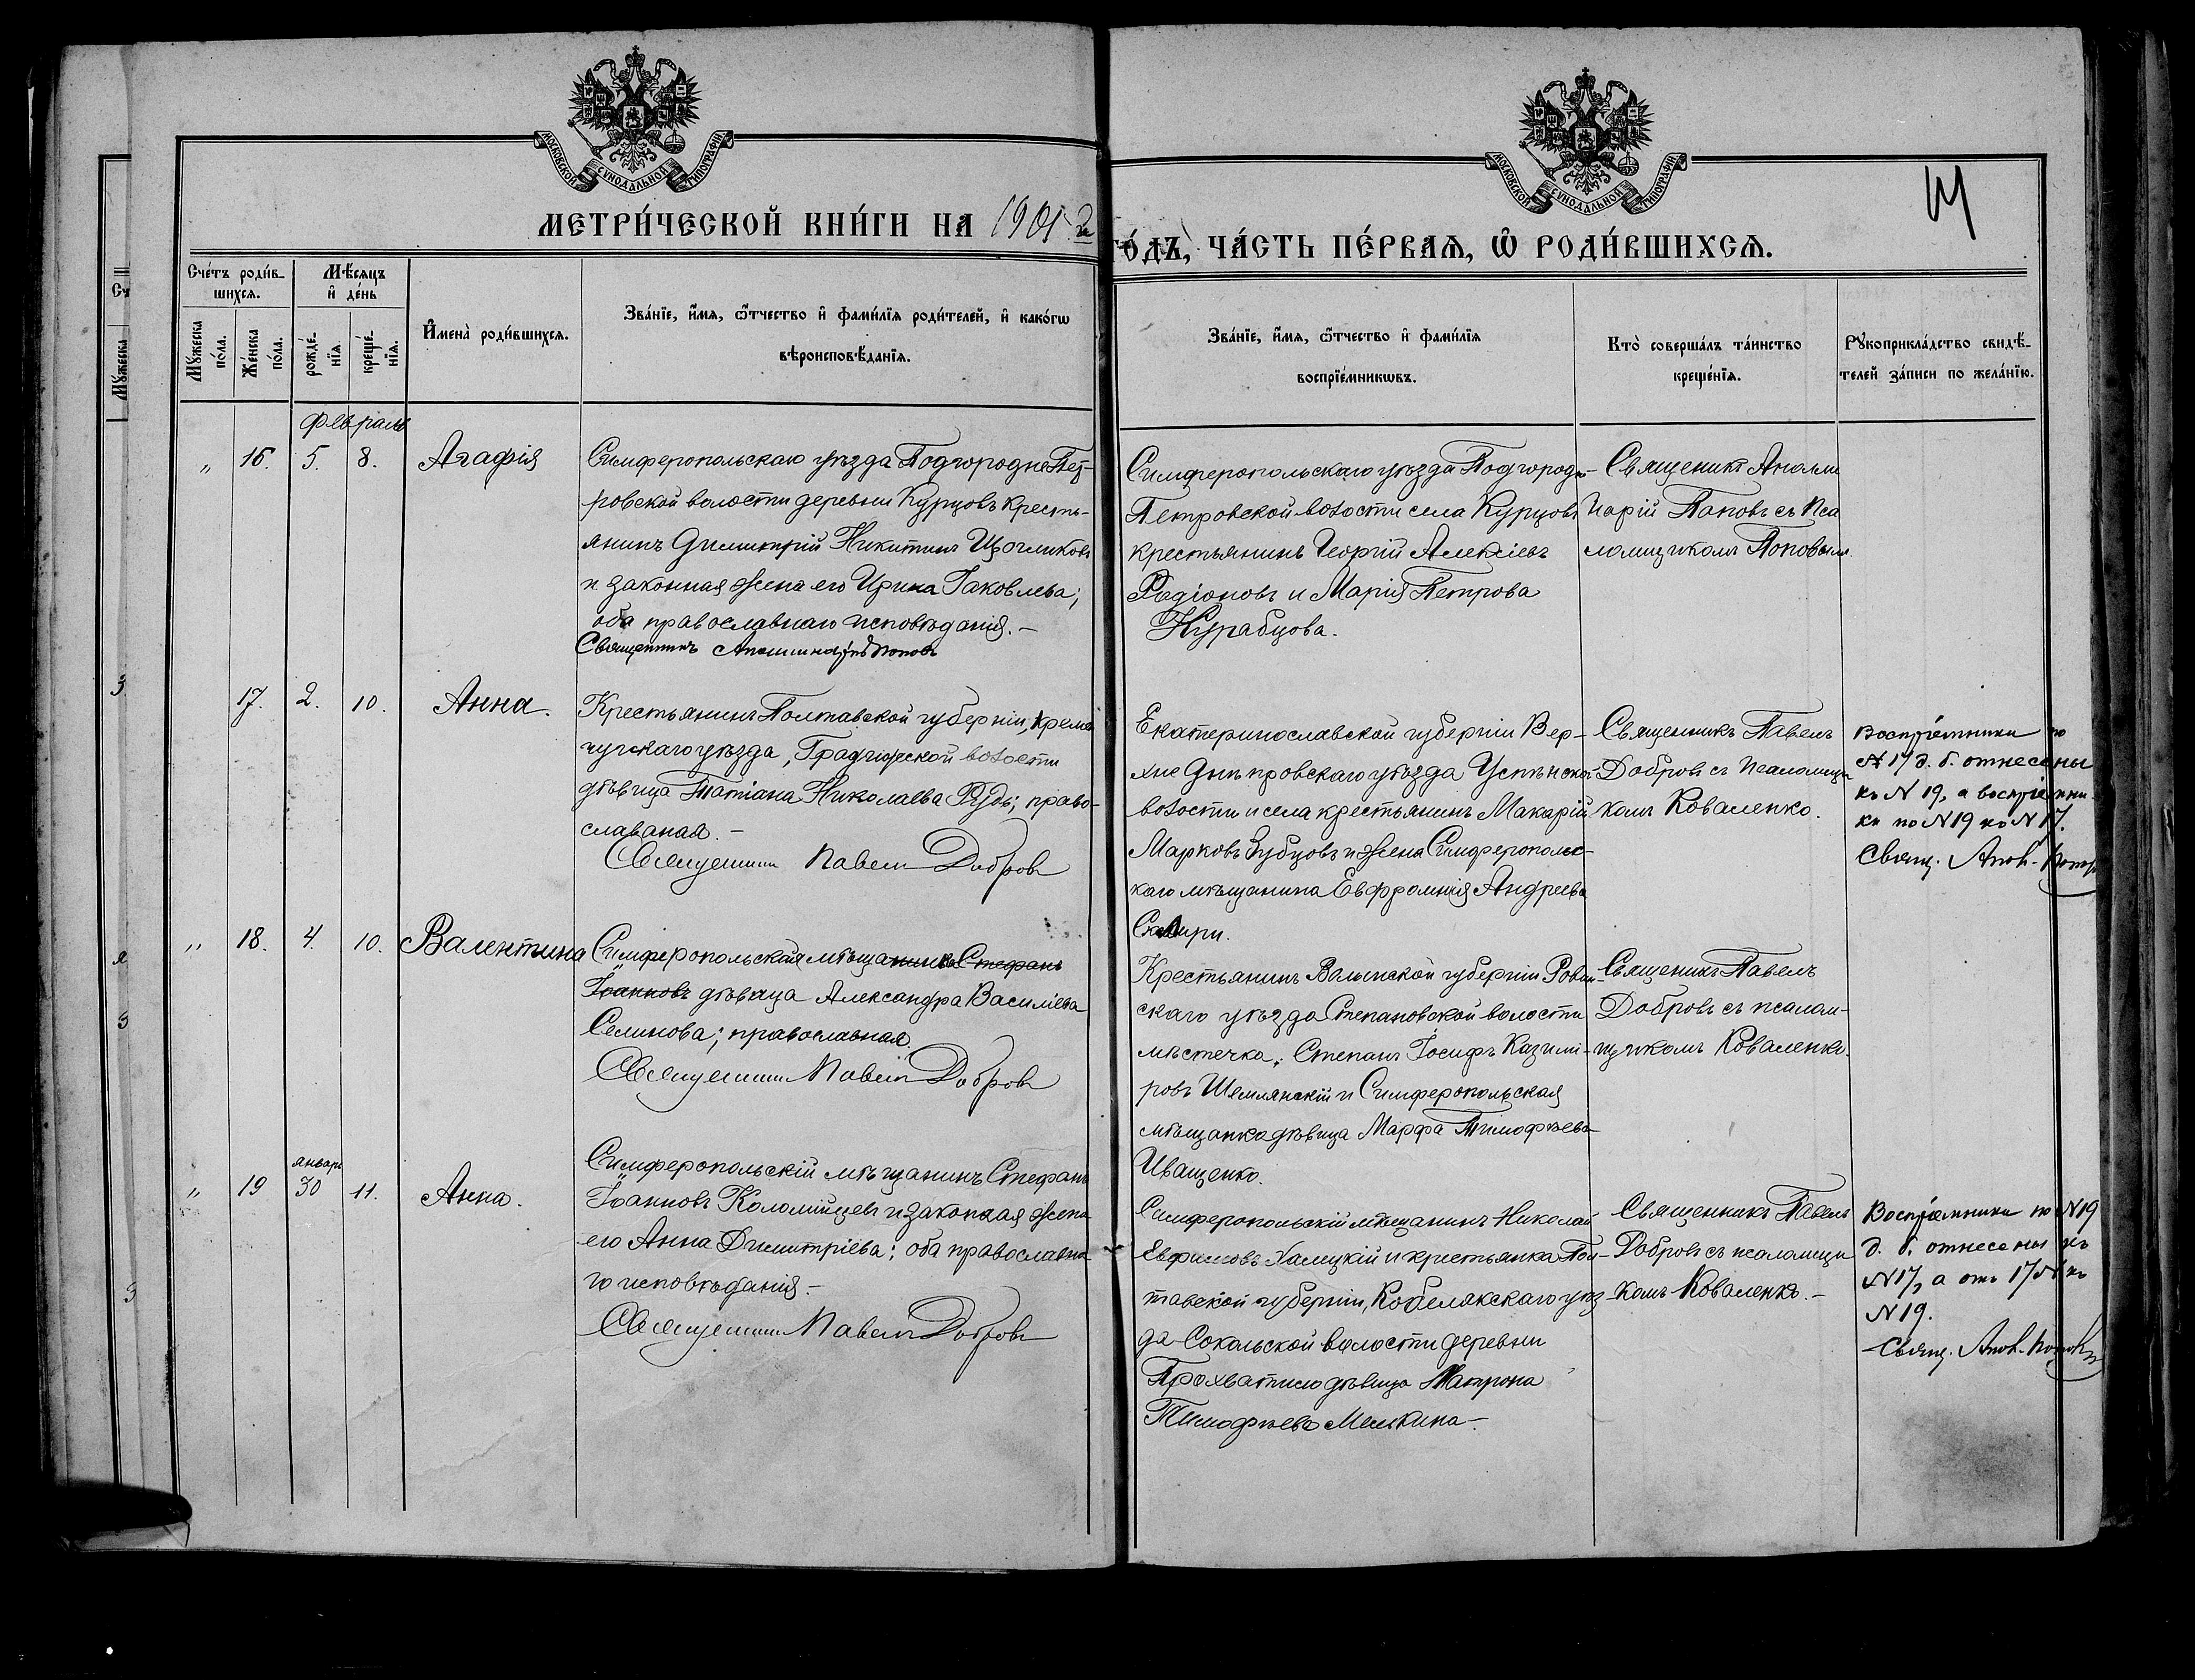 МОСКОВСКОЙ СѴНОДАЛЬНОЙ ТИПОГРАФІИ
МЕТРИ́ЧЕСКОЙ КНИ́ГИ НА 1901 го́дъ, ЧА́СТЬ ПЕ́РВАЯ, Ѡ РОДИ́ВШИХСЯ.
МОСКОВСКОЙ СѴНОДАЛЬНОЙ ТИПОГРАФІИ
Сче́тъ роди́в-
шихся.
Мꙋжеска по́ла.
Же́нска по́ла.
Мѣ́сяцъ
и҆ де́нь
рожде́-
нїя.
креще́-
нїя.
И҆мена̀ роди́вшихся.
Зва́нїе, и҆́мя, ѻ҆́тчество и҆ фами́лїя роди́телей, и҆ како́гѡ
вѣроисповѣ́данїя.
Зва́нїе, и҆́мя, ѻ҆́тчество и҆ фами́лїя
воспрїе́мникѡвъ.
Кто̀ соверша́лъ та́инство
креще́нїя.
Рꙋкоприкла́дство свидѣ́-
телей за́писи по жела́нїю.
февраль
„ 16. 5. 8. Агафія
Симферопольскаго уѣзда Подгородне Пет-
ровской волости деревни Курцовъ кресть-
янинъ Димитрій Никитинъ
и законная жена его Ирина Іаковлева;
оба православнаго исповѣданія.—
Священникъ Поповъ
Симферопольскаго уѣзда Подгородн-
Петровской волости села Курцовъ
крестьянинъ Георгій Алексіевъ
Родіоновъ и Марія Петрова
Курабцова.
Священикъ Аполли
нарій Поповъ съ Пса
ломщикомъ Поповым.
17. 2. 10. Анна.
Крестьянинъ Полтавской губерніи, Кремен
чугскаго уѣзда, Градижской волости
дѣвица Татіана Николаева Рудь; право-
славаная.—
Священникъ Павелъ Добровъ
Екатеринославской губерніи Вер-
хне Днѣпровскаго уѣзда Успѣнской
волости и села крестьянинъ Макарій
Марковъ Зубцовъ и жена Симферопольс-
каго мѣщанина Евфросинія Андреева
Священникъ Павелъ
Добровъ съ псаломщи
комъ Коваленко.
Воспріемники по
№ 17 д. б. отнесены
къ № 19, а воспріемни
ки по № 19 къ № 17.
Свящ. Апол. Поповъ
„ 18. 4. 10. Валентина
Симферопольская мѣщанинъ Стефанъ
Іоанновъ дѣвица Александра Василіева
Селинова; православная.
Священникъ Павелъ Добровъ
Крестьянинъ Волынской губерніи Ровен-
скаго уѣзда Степановской волости
мѣстечка. Степань Іосифъ Казими-
ровъ Шемлянскій и Симферопольская
мѣщанка дѣвица Марфа Тимофѣева
Иващенко.
Священикъ Павелъ
Добровъ съ псалом-
щикомъ Коваленко.
январь
„ 19 30 11. Анна.
Симферопольскій мѣщанинъ Стефанъ
Іоанновъ Коломійцевъ и законная жена
его Анна Димитріева; оба православна
го исповѣданія.—
Священникъ Павелъ Добровъ
Симферопольскій мѣщанинъ Николай
Евфимовъ Халицкій и крестьянка Пол-
тавской губерніи, Кобелякскаго уѣз
да Сокольской волости деревни
Прохватило дѣвица Матрона
Тимофѣева Мелькина.—
Священникъ Павелъ
Добровъ съ псаломщи
комъ Коваленко.—
Воспріемники по № 19
д. б. отнесены къ
№ 17, а отъ 17 № къ
№ 19.
Свящ. Апол. Поповъ